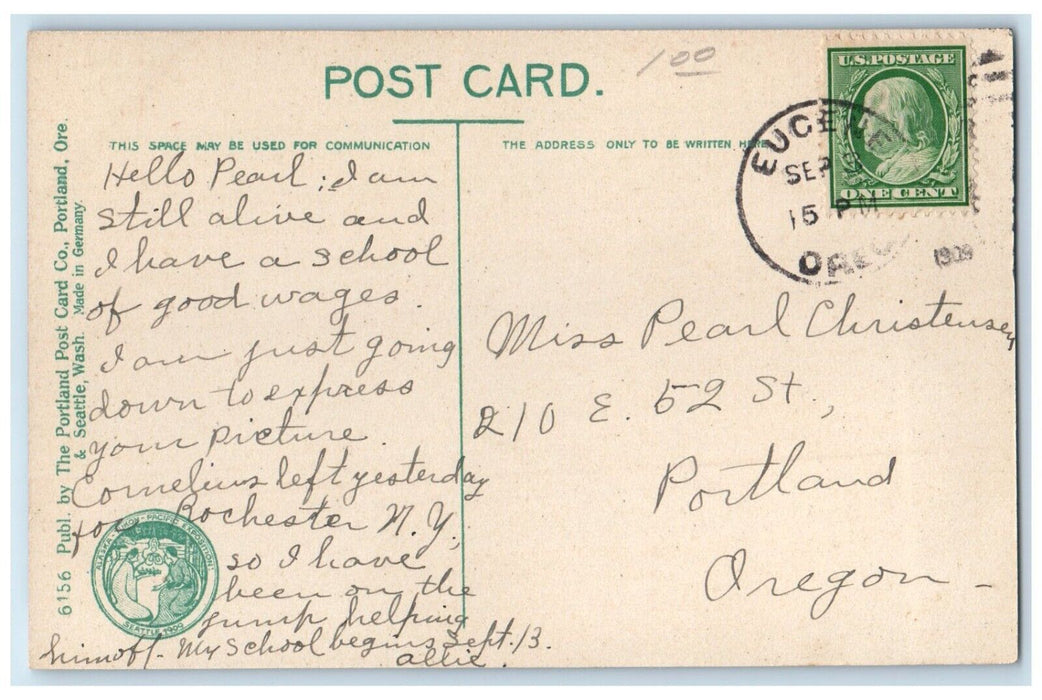 1.00
POST CARD.
U.S. POSTAGE
ONE CENT
EUGENE
SEP
15 PM
OREG
1909
THIS SPACE MAY BE USED FOR COMMUNICATION
THE ADDRESS ONLY TO BE WRITTEN HERE
Hello Pearl; I am
still alive and
I have a school
of good wages.
I am just going
down to express
your picture.
Cornelius left yesterday
for Rochester N.Y,
so I have
been on the
jump helping
him off. My School begins Sept. 13.
Allie.
Miss Pearl Christensen
210 E. 52 St.,
Portland
Oregon -
6156 Publ. by The Portland Post Card Co., Portland, Ore.
& Seattle, Wash. Made in Germany.
ALASKA-YUKON-PACIFIC EXPOSITION
SEATTLE 1909